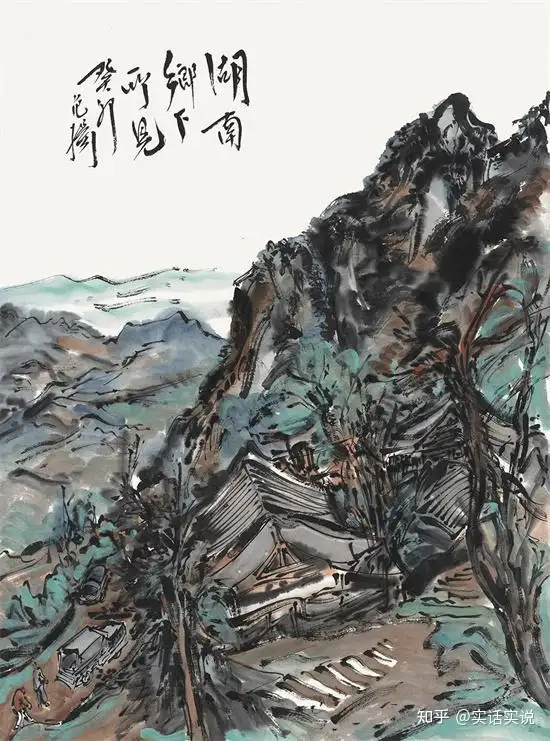 湖南
鄉下
所見
癸卯
范揚
知乎 @实话实说